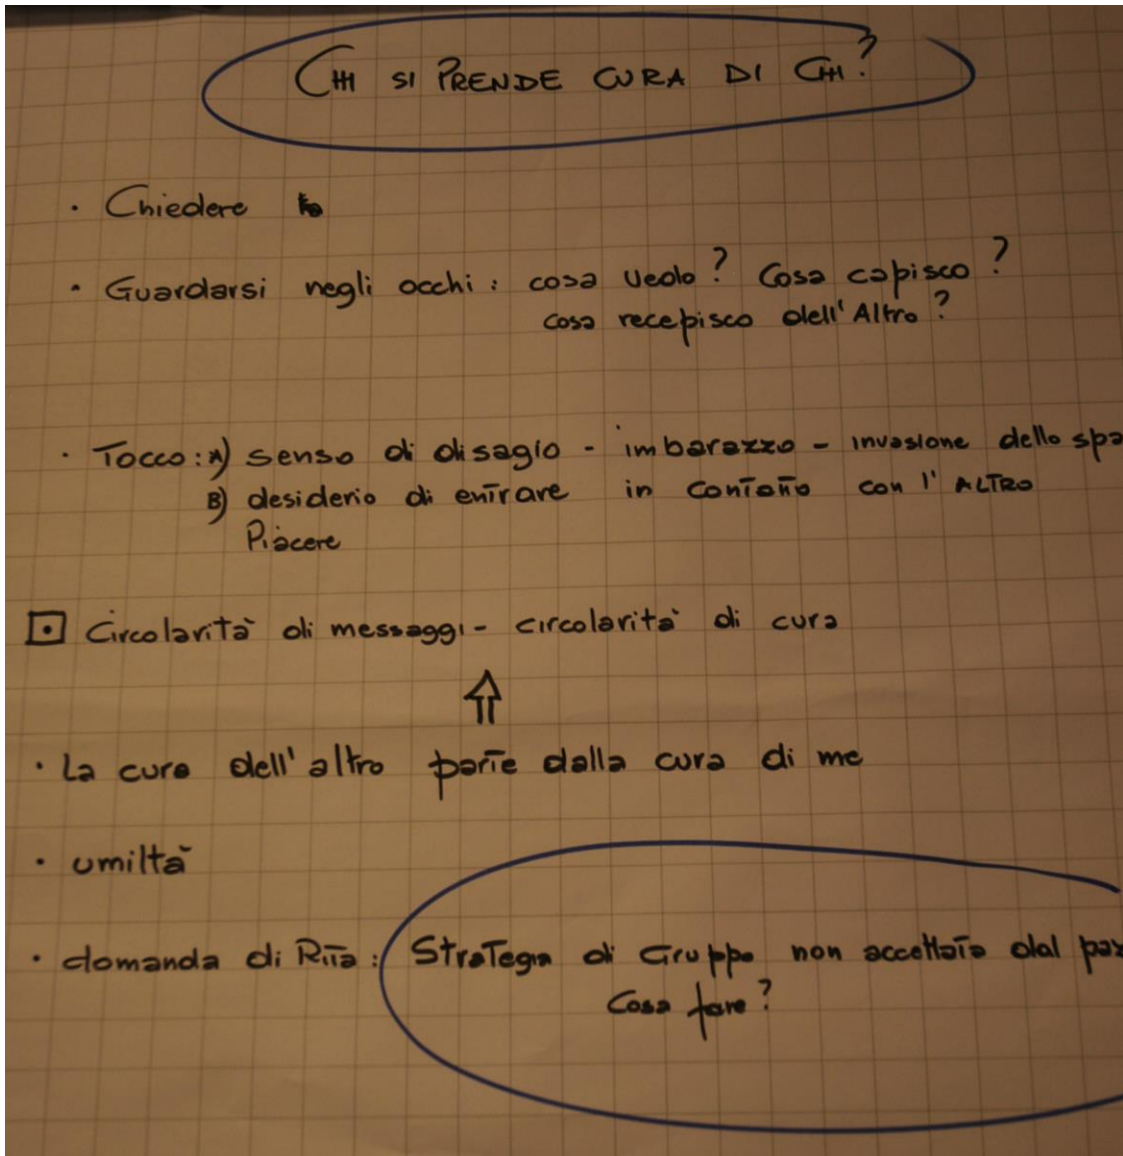 CHI SI PRENDE CURA DI CHI?
· Chiedere
· Guardarsi negli occhi: cosa vedo? Cosa capisco?
cosa recepisco dell'Altro?
· Tocco: A) senso di disagio - imbarazzo - invasione dello spa
B) desiderio di entrare in contatto con l'ALTRO
Piacere
Circolarità di messaggi - circolarità di cura
· La cura dell'altro parte dalla cura di me
· umiltà
· domanda di Rita: Strategia di Gruppo non accettata dal paz
Cosa fare?